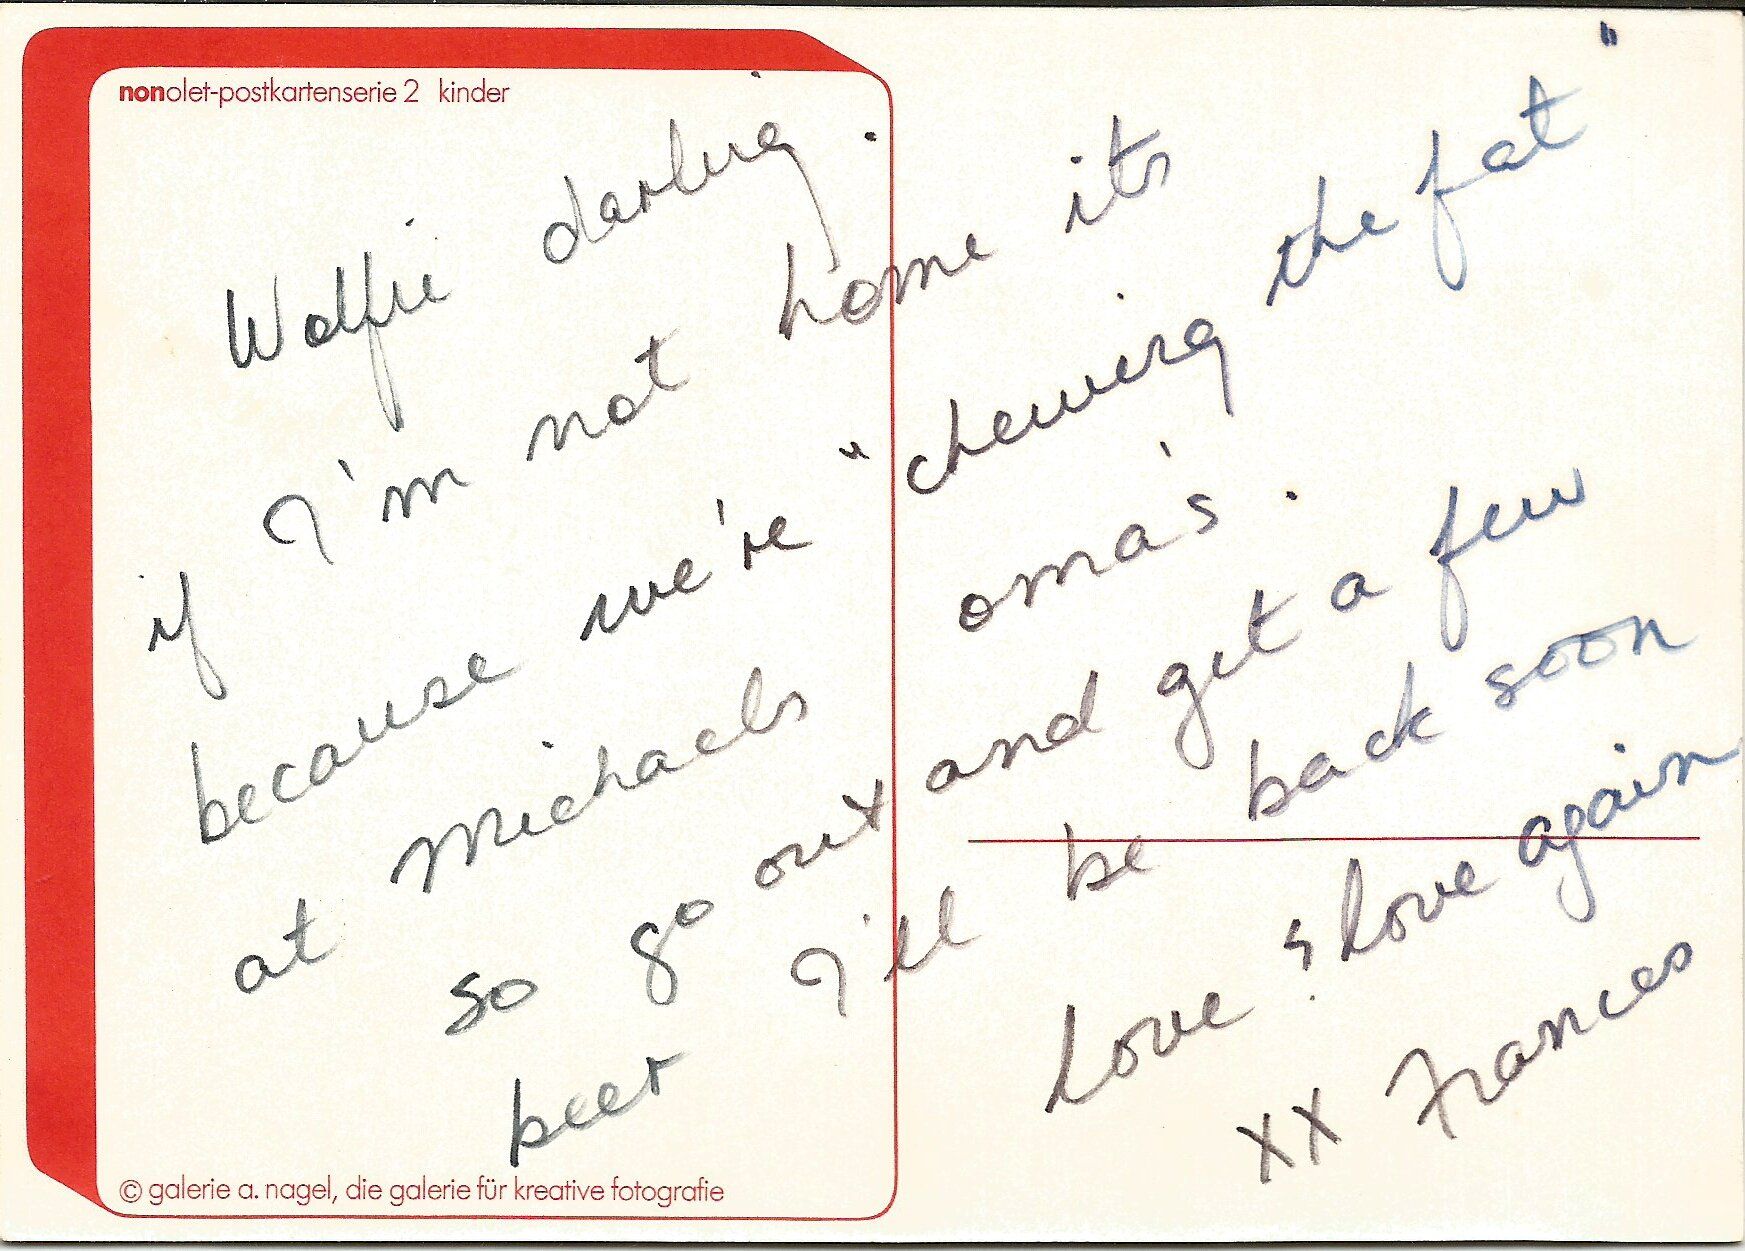 nonolet-postkartenserie 2 kinder
Wolfie darling.
if I'm not home its
because we're "chewing the fat"
at Michaels oma's.
so go out and get a few
beer I'll be back soon
love & love again
xx Frances
© galerie a. nagel, die galerie für kreative fotografie